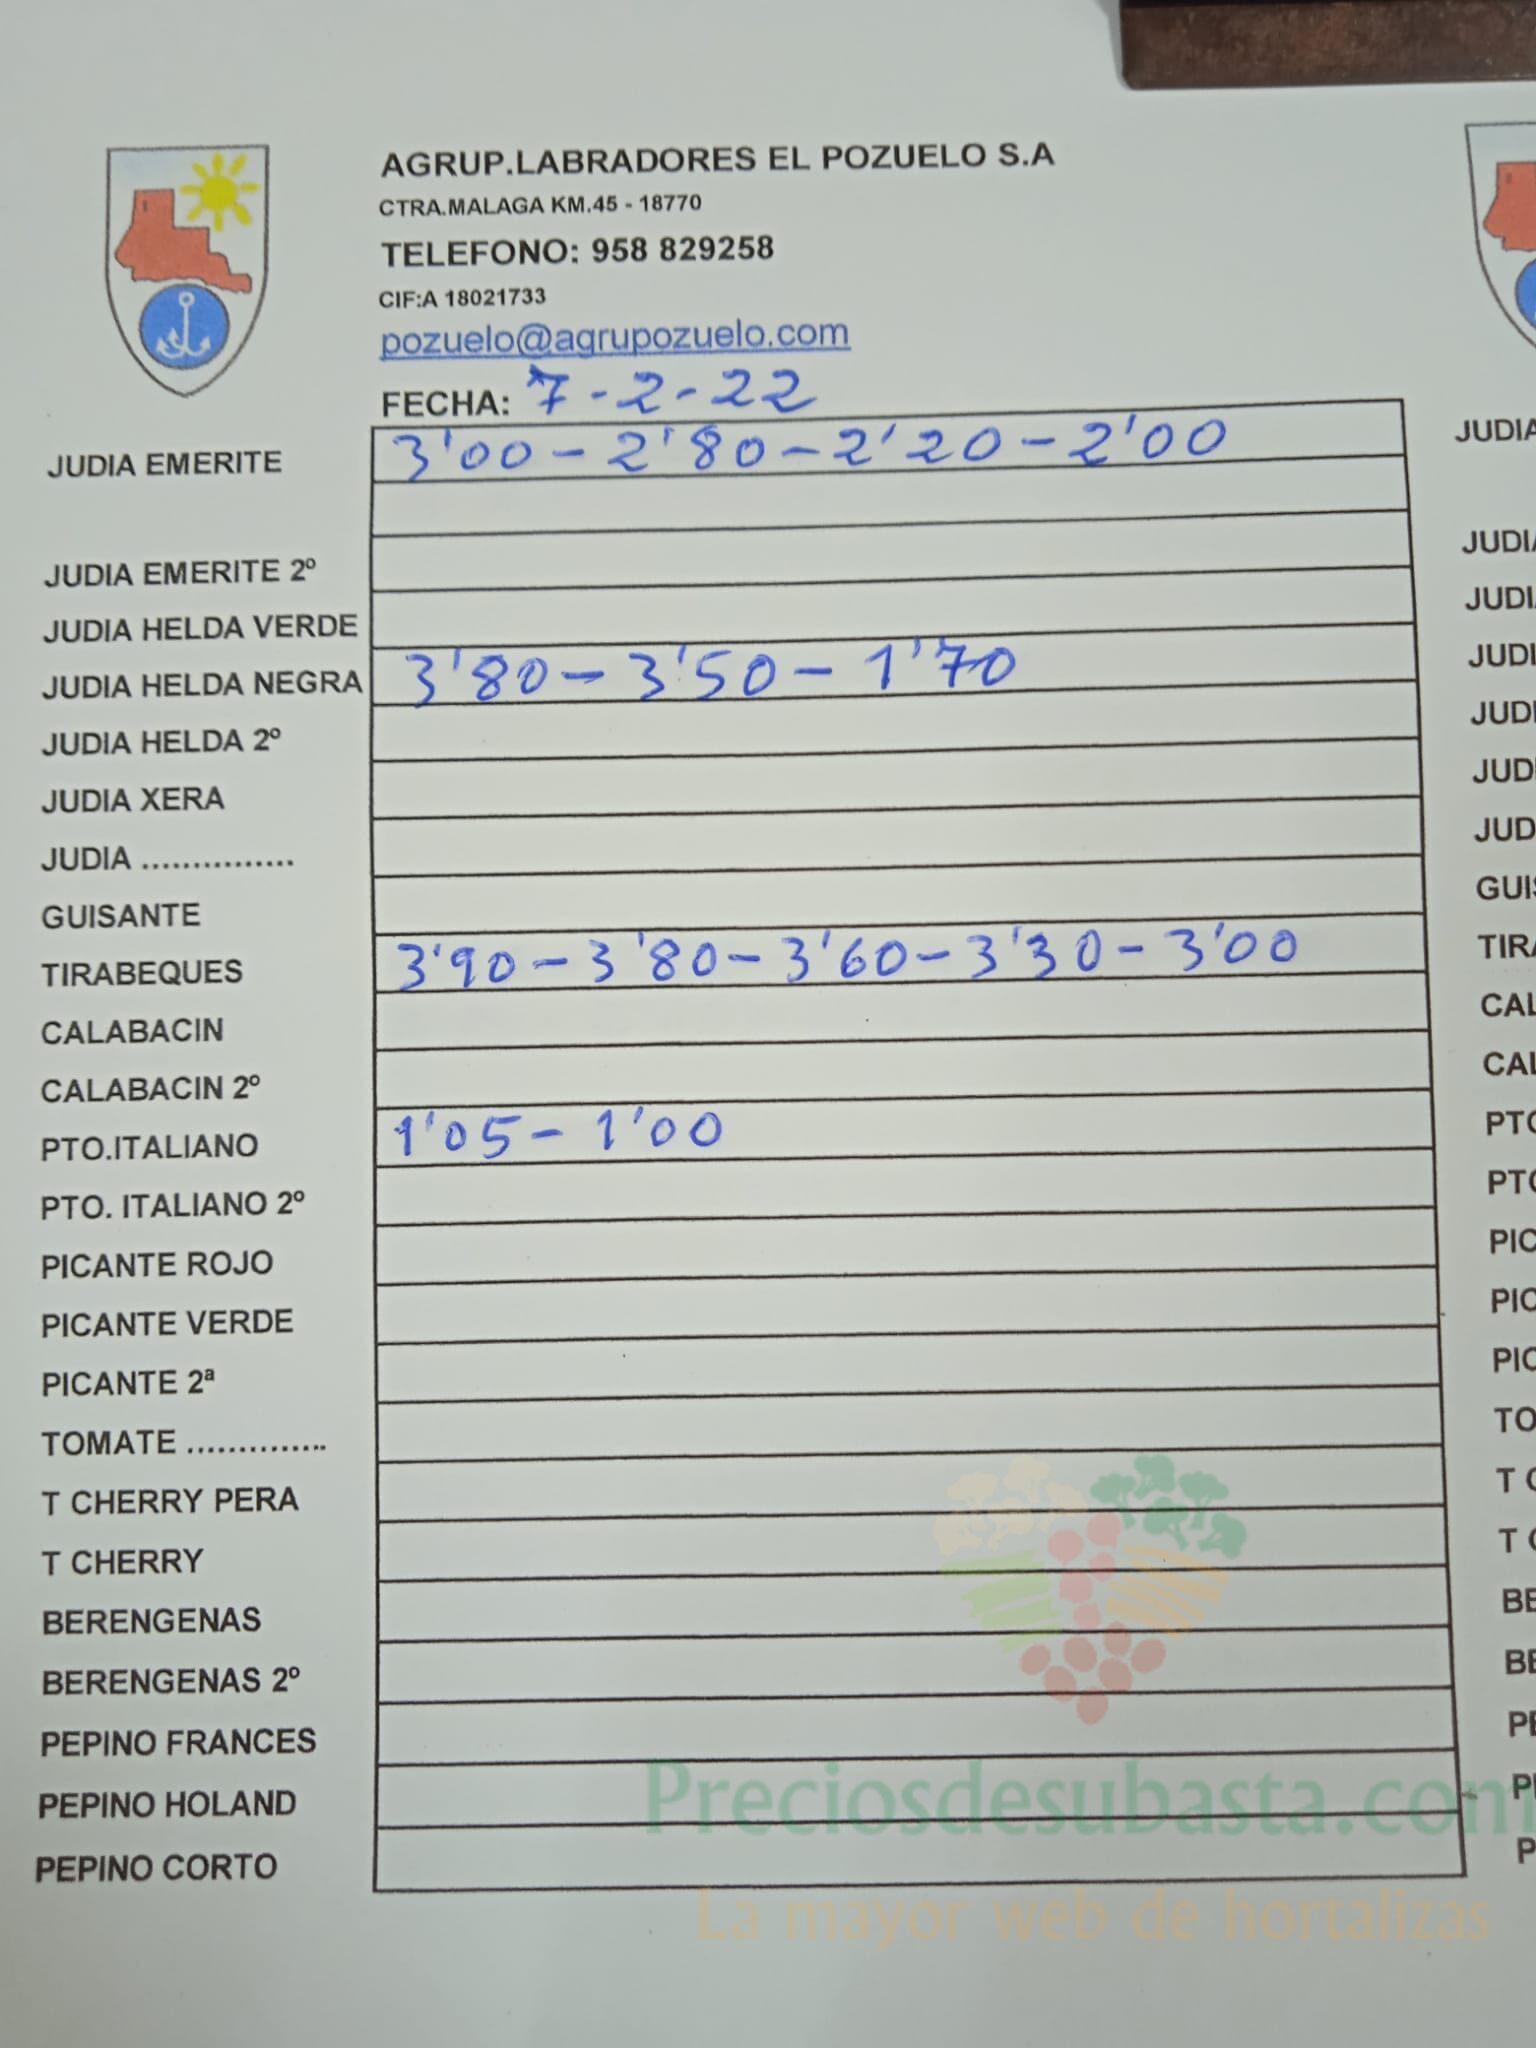 AGRUP.LABRADORES EL POZUELO S.A
CTRA.MALAGA KM.45 - 18770
TELEFONO: 958 829258
CIF:A 18021733
pozuelo@agrupozuelo.com
FECHA: 7-2-22
JUDIA EMERITE 3'00 - 2'80 - 2'20 - 2'00
JUDIA EMERITE 2º
JUDIA HELDA VERDE
JUDIA HELDA NEGRA 3'80 - 3'50 - 1'70
JUDIA HELDA 2º
JUDIA XERA
JUDIA ...............
GUISANTE
TIRABEQUES 3'90 - 3'80 - 3'60 - 3'30 - 3'00
CALABACIN
CALABACIN 2º
PTO.ITALIANO 1'05 - 1'00
PTO. ITALIANO 2º
PICANTE ROJO
PICANTE VERDE
PICANTE 2ª
TOMATE ..............
T CHERRY PERA
T CHERRY
BERENGENAS
BERENGENAS 2º
PEPINO FRANCES
PEPINO HOLAND
PEPINO CORTO
Preciosdesubasta.com
La mayor web de hortalizas
JUDIA